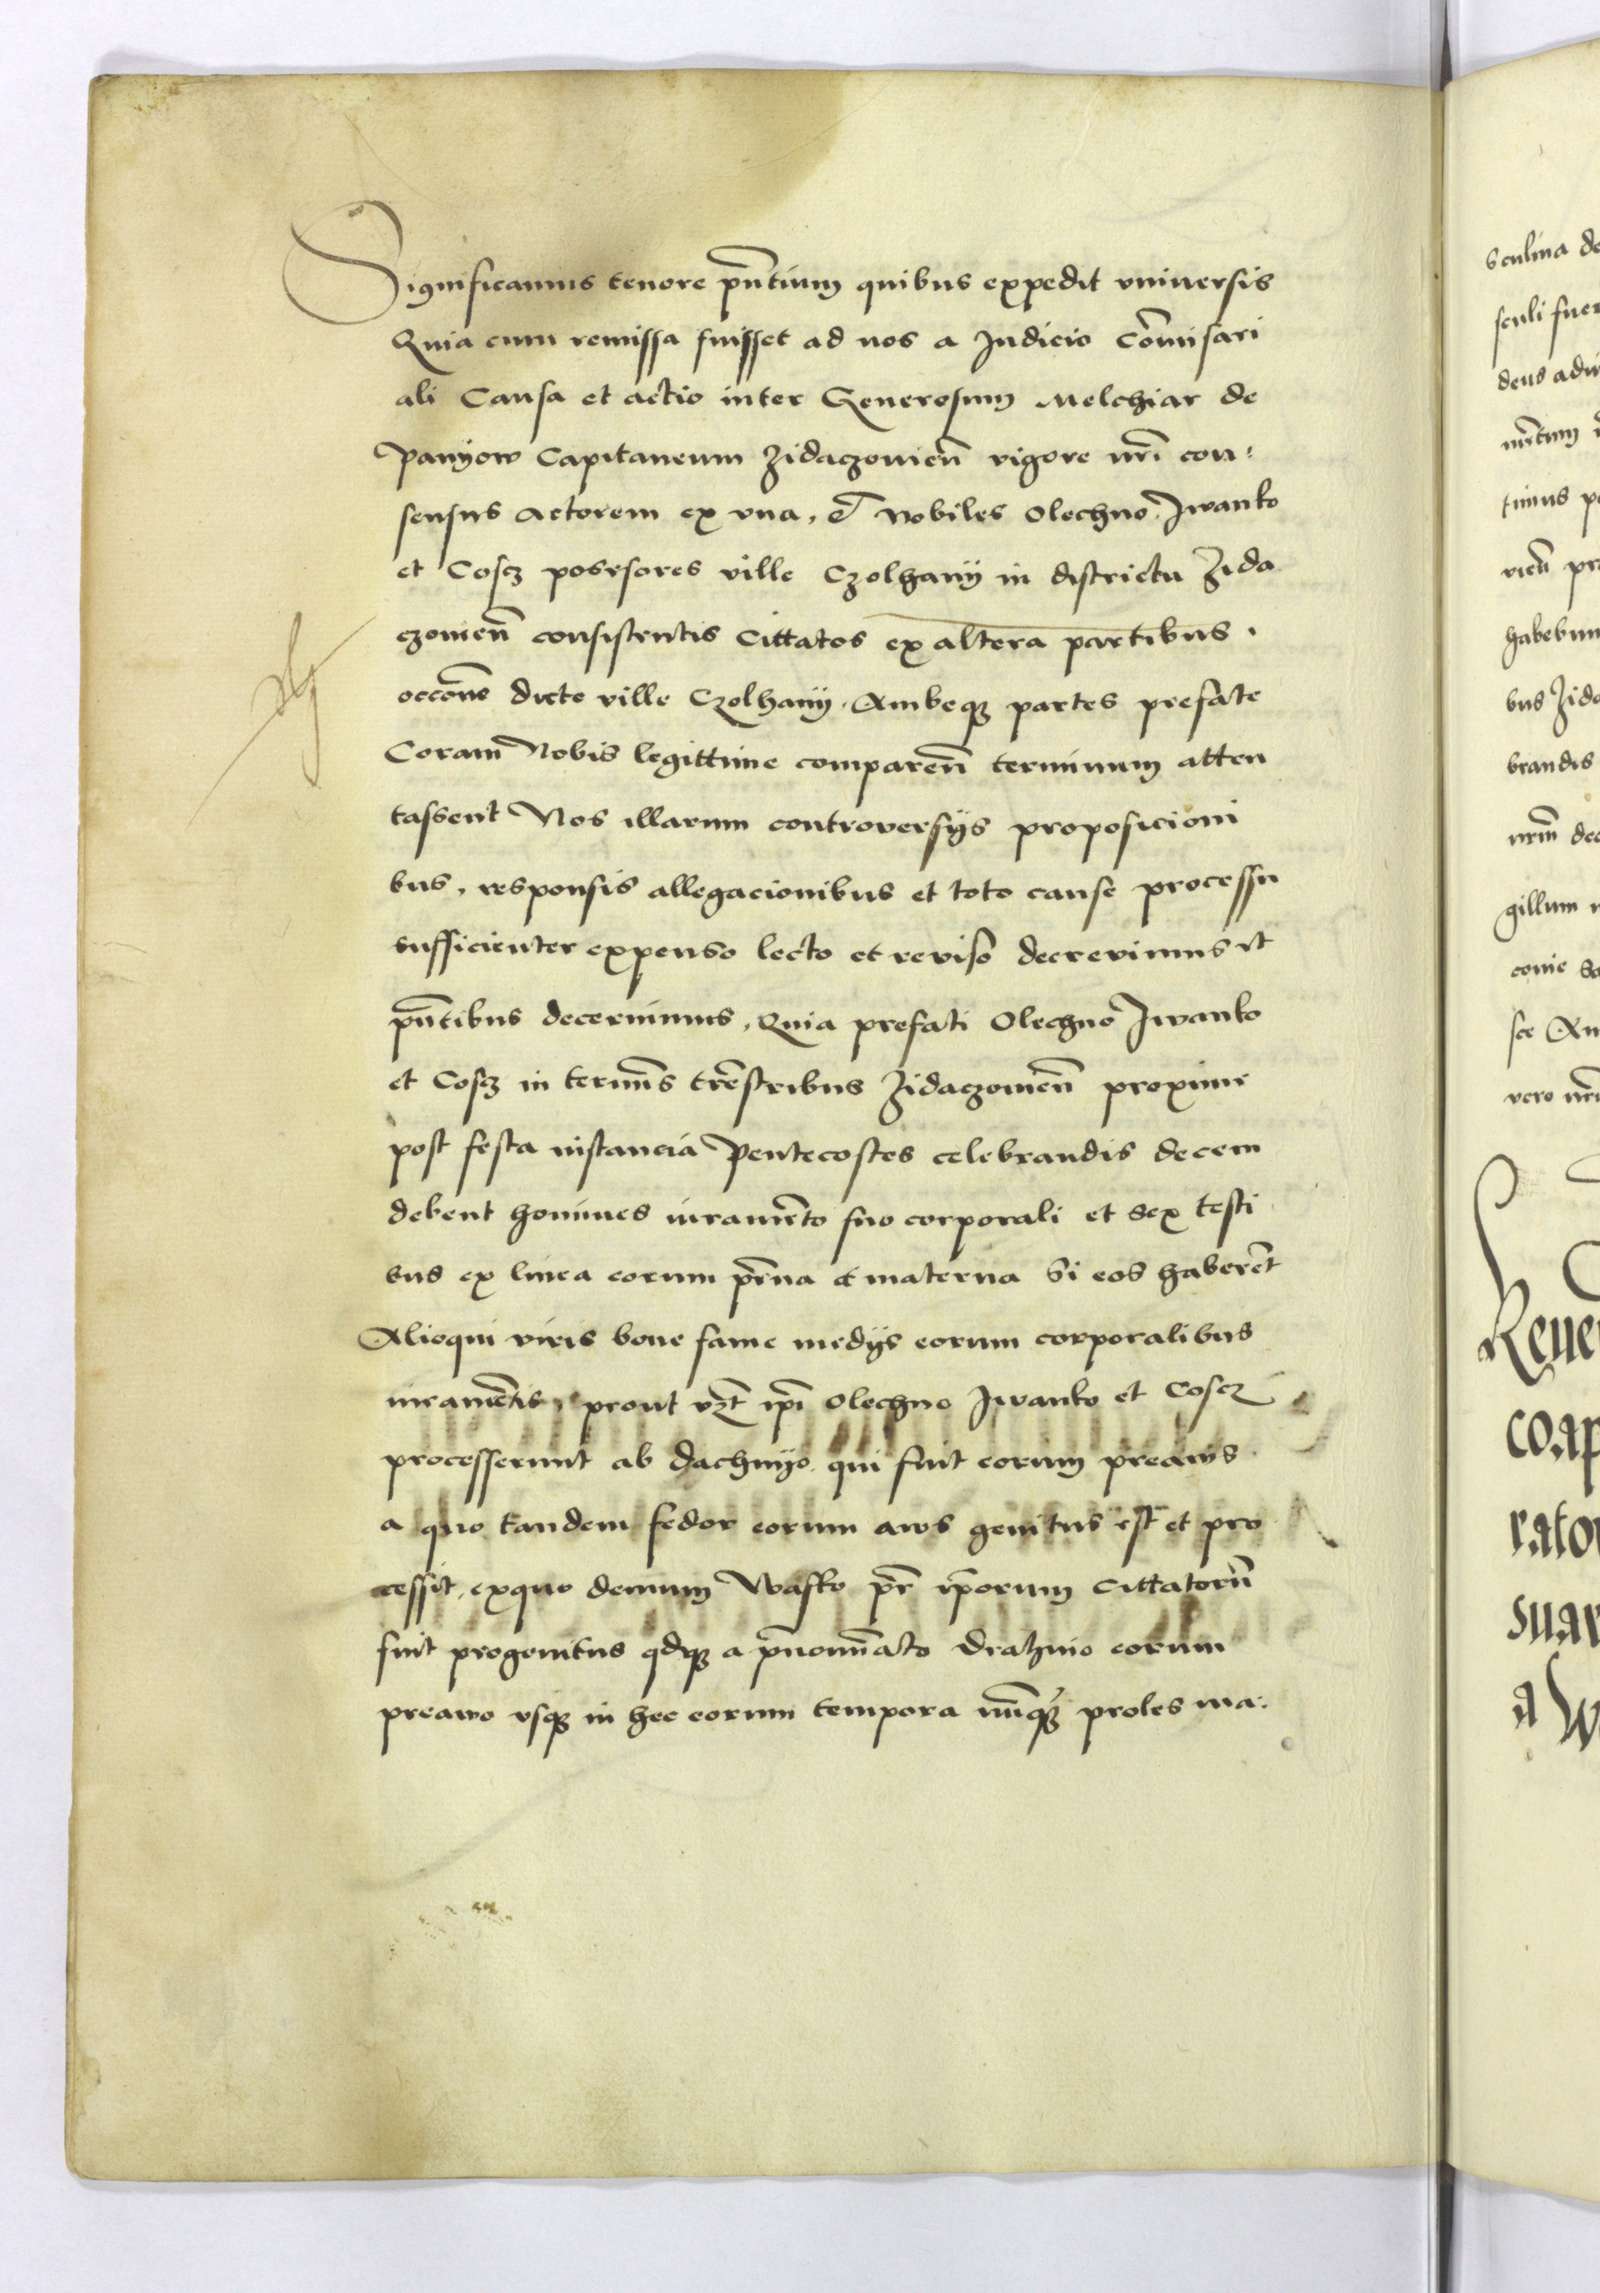 Significamus tenore pn̄tium quibus expedit vniuersis
Quia cum remissa fuisset ad nos a Judicio Com̄isari
ali Causa et actio inter Generosum Melchiar de
Panyow Capitaneum Zidaczouien̄ vigore nr̄i con:
sensus Actorem ex vna, & Nobiles Olechno Iwanko
et Coscz possesores ville Czolhany in districtu Zida
czouien̄ consistentis Cittatos ex altera partibus.
occōne dicte ville Czolhany. Ambeqꝫ partes prefate
Coram Nobis legittime comparen̄ terminum atten
tassent Nos illarum controversijs proposicioni
bus, responsis allegacionibus et toto cause processu
sufficienter expenso lecto et reviso decrevimus et
pn̄tibus decernimus, Quia prefati Olechno Iwanko
et Coscz in termīs tr̄estribus Zidaczouien̄ proximi
post festa instancia Pentecostes celebrandis decem
debent homines iuramēto suo corporali et sex testi
bus ex linea eorum pr̄na & materna Si eos haberēt
Alioqui viris bone fame medijs eorum corporalibus
iuramētis, prout vꝫt ip̄i Olechno Iwanko et Coscz
processerunt ab Dachnyo qui fuit eorum preaws
a quo tandem fedor eorum aws genitus est et pro
cessit, exquo demum Wasko pr̄ ip̄orum Cittatorū
fuit progenitus qdqꝫ a pn̄omīato Drahnio eorum
preawo vsqꝫ in hec eorum tempora nūqꝫ proles ma:
sculina de
sculi fuer
deus adu
tinus p
habebun
bus Zida
brandis
nrm̄ dec
gillum
conie
sce An
vero nr̄
Reue
coap
rator
suar
a W